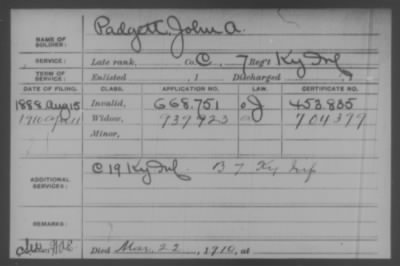 NAME OF SOLDIER: Padgett, John A.
SERVICE: Late rank, Co. C, 7 Reg't Ky Inf
TERM OF SERVICE: Enlisted , 1 Discharged , 1
DATE OF FILING. CLASS. APPLICATION NO. LAW. CERTIFICATE NO.
1888 Aug 15 Invalid, 668.751 J 453.835
1910 Apr 11 Widow, 937922 704379
Minor,
ADDITIONAL SERVICES: C 19 Ky Inf B 7 Ky Inf
REMARKS:
Died Mar. 22, 1910, at